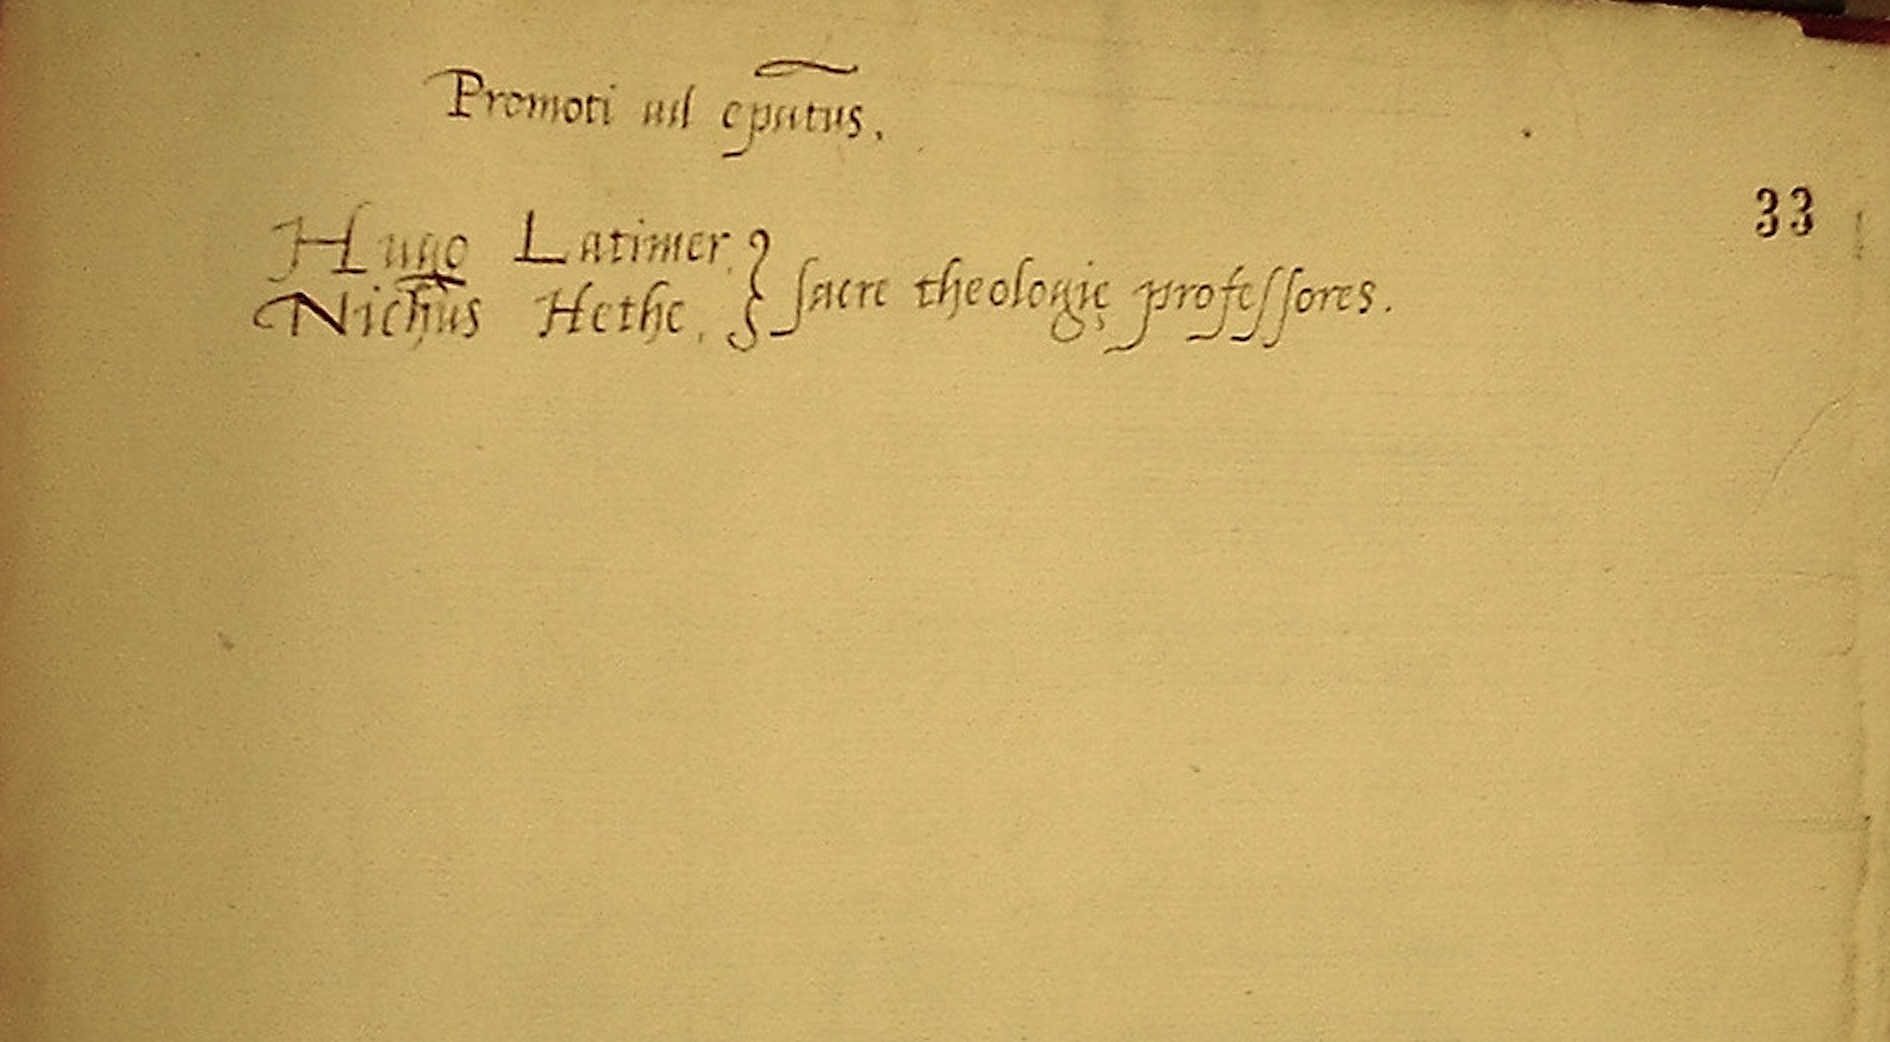 Promoti ad ep̃atus.
33
Hugo Latimer.
Nich̃us Hethe. } sacre theologię professores.